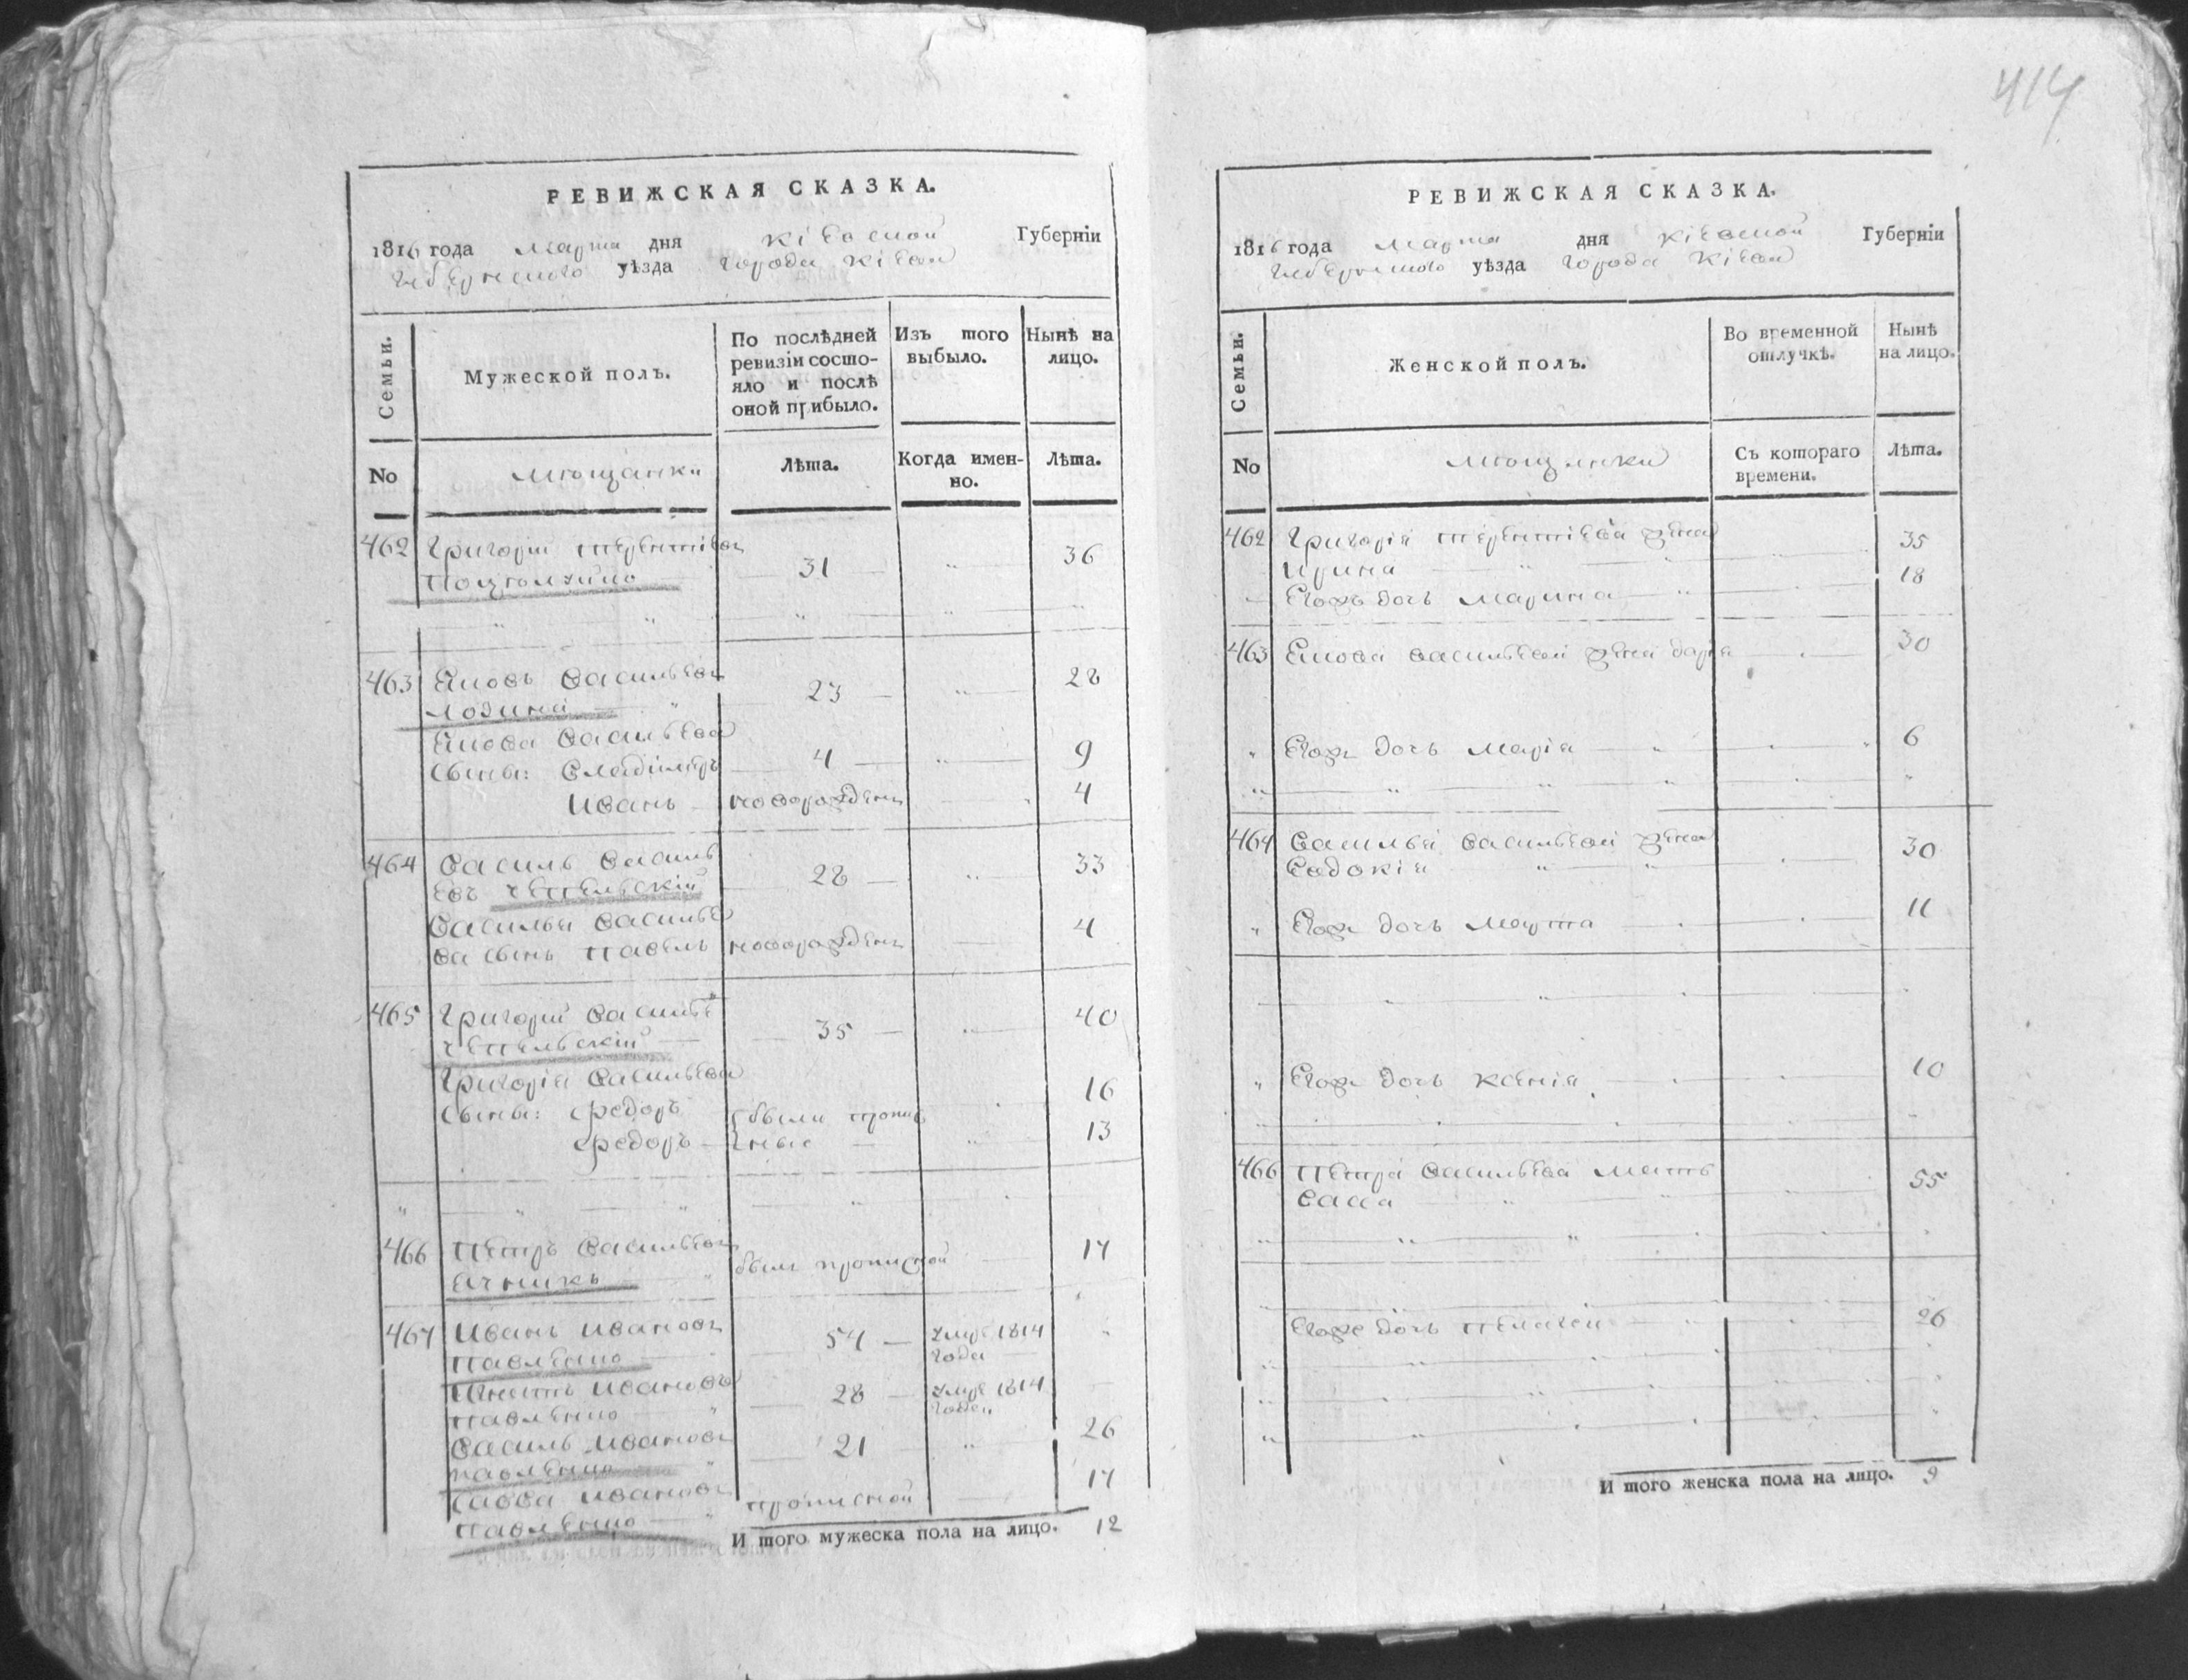 414
РЕВИЖСКАЯ СКАЗКА.
1816 года Марта дня Кіевской Губерніи
уѣзда города Кіева
Семьи.
Мужеской полъ.
По послѣдней ревизіи состо-
яло и послѣ оной прибыло.
Изъ того выбыло.
Нынѣ на лицо.
No
Мѣщанки
Лѣта.
Когда имен-
но.
Лѣта.
462 Григорій Терентіевъ
31 36
463 Яковъ Васильевъ
Лозинскій 23 28
Якова Васильева
сыны: Владіміръ 4 9
Иванъ новорожденъ 4
464 Василь Василь
евъ Чепельскій 28 33
Василья Василье
ва сынъ Павелъ новорожденъ 4
465 Григорій Василье
Чепельскій 35 40
Григорія Васильева
сыны: Федоръ были пропис 16
Федоръ 13
466 Петръ Васильевъ
Ячникъ былъ прописной 17
467 Иванъ Ивановъ 54 умре 1814
Павленко года
Игнатъ Ивановъ 28 умре 1814
Павленко года
Василь Ивановъ 21 26
Павленко
Савва Ивановъ прописной 17
Павленко
И того мужеска пола на лицо. 12
РЕВИЖСКАЯ СКАЗКА.
1816 года Марта дня Кіевской Губерніи
уѣзда города Кіева
Семьи.
Женской полъ.
Во временной отлучкѣ.
Нынѣ на лицо.
No
Мѣщанки
Съ котораго времени.
Лѣта.
462 Григорія Терентіева жена
Ирина 35
Егожъ дочь Марина 18
463 Якова Васильева жена Дарія 30
Егожъ дочь Марія 6
464 Василья Васильева жена
Евдокія 30
Егожъ дочь Марта 11
Егожъ дочь Ксенія 10
466 Петра Васильева мать
Васса 55
Егоже дочь Пелагея 26
И того женска пола на лицо. 9